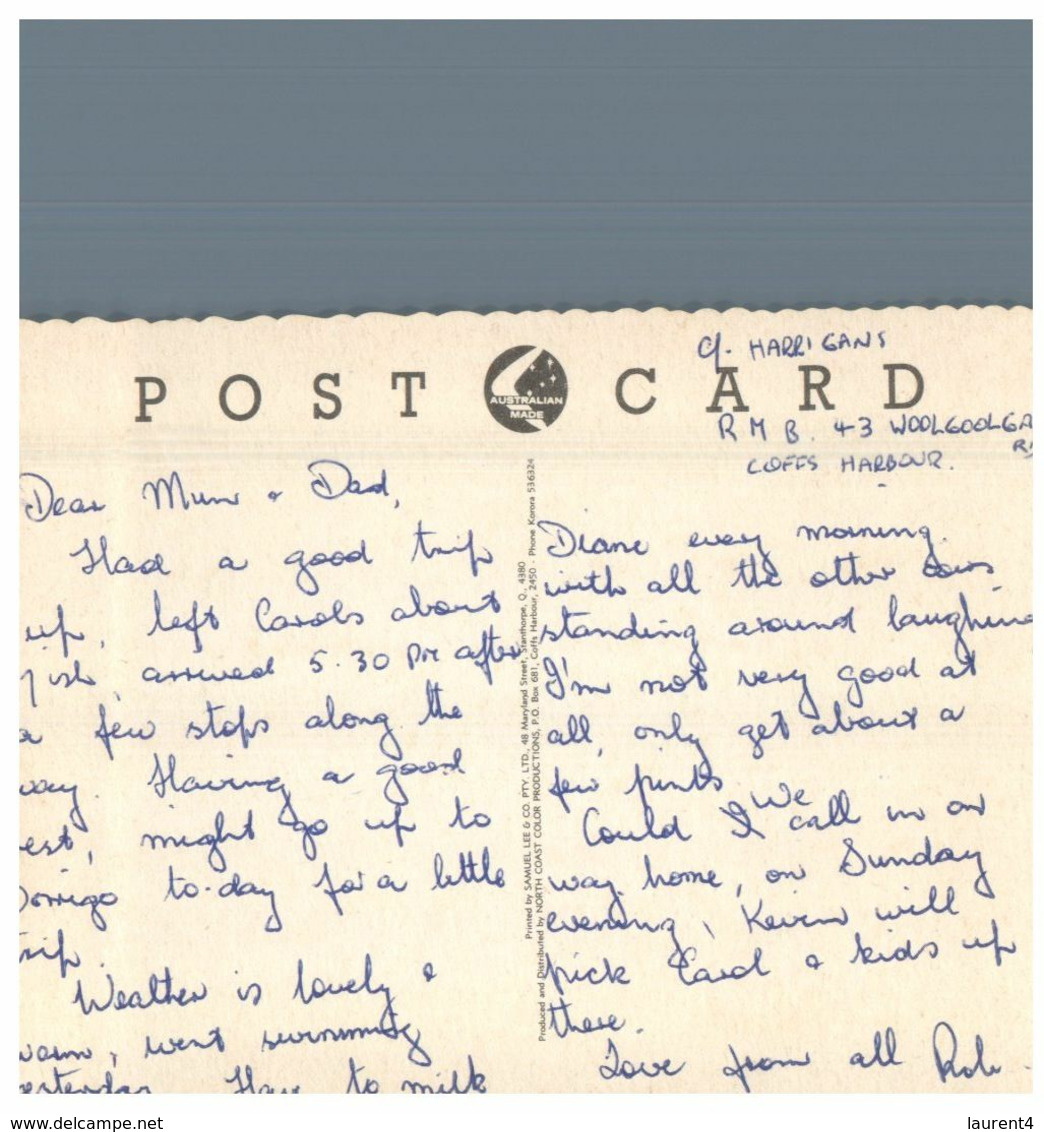 c/- HARRIGANS
POST CARD
AUSTRALIAN
MADE
R M B. 43 WOOLGOOLGA
COFFS HARBOUR.
Dear Mum & Dad,
Had a good trip
up, left Carols about
arrived 5.30 PM after
a few stops along the
way. Having a good
rest, might go up to
Dorrigo to-day for a little
trip.
Weather is lovely &
warm, went swimming
yesterday. Have to milk
Printed by SAMUEL LEE & CO. PTY. LTD., 48 Maryland Street, Stanthorpe, Q., 4380
Produced and Distributed by NORTH COAST COLOR PRODUCTIONS, P.O. Box 681, Coffs Harbour, 2450 - Phone Korora 536324
Diane every morning
with all the other cows
standing around laughing
I'm not very good at
all, only get about a
few pints
Could I We call in on
way home, on Sunday
evening, Kevin will
pick Carol & kids up
there.
Love from all Rob.
www.delcampe.net
laurent4